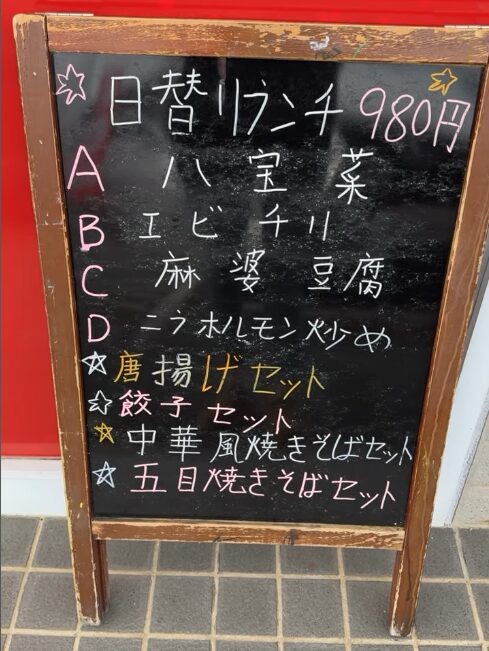 日替リランチ 980円
A 八宝菜
B エビチリ
C 麻婆豆腐
D ニラホルモン炒め
☆唐揚げセット
☆餃子セット
☆中華風焼きそばセット
☆五目焼きそばセット